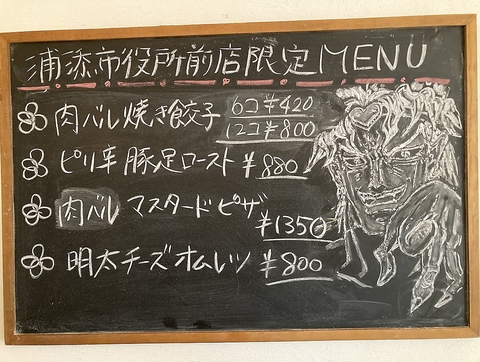 浦添市役所前店限定MENU
肉バル焼き餃子 6コ¥420
12コ¥800
ピリ辛豚足ロースト¥880
肉バルマスタードピザ
¥1350
明太チーズオムレツ¥800